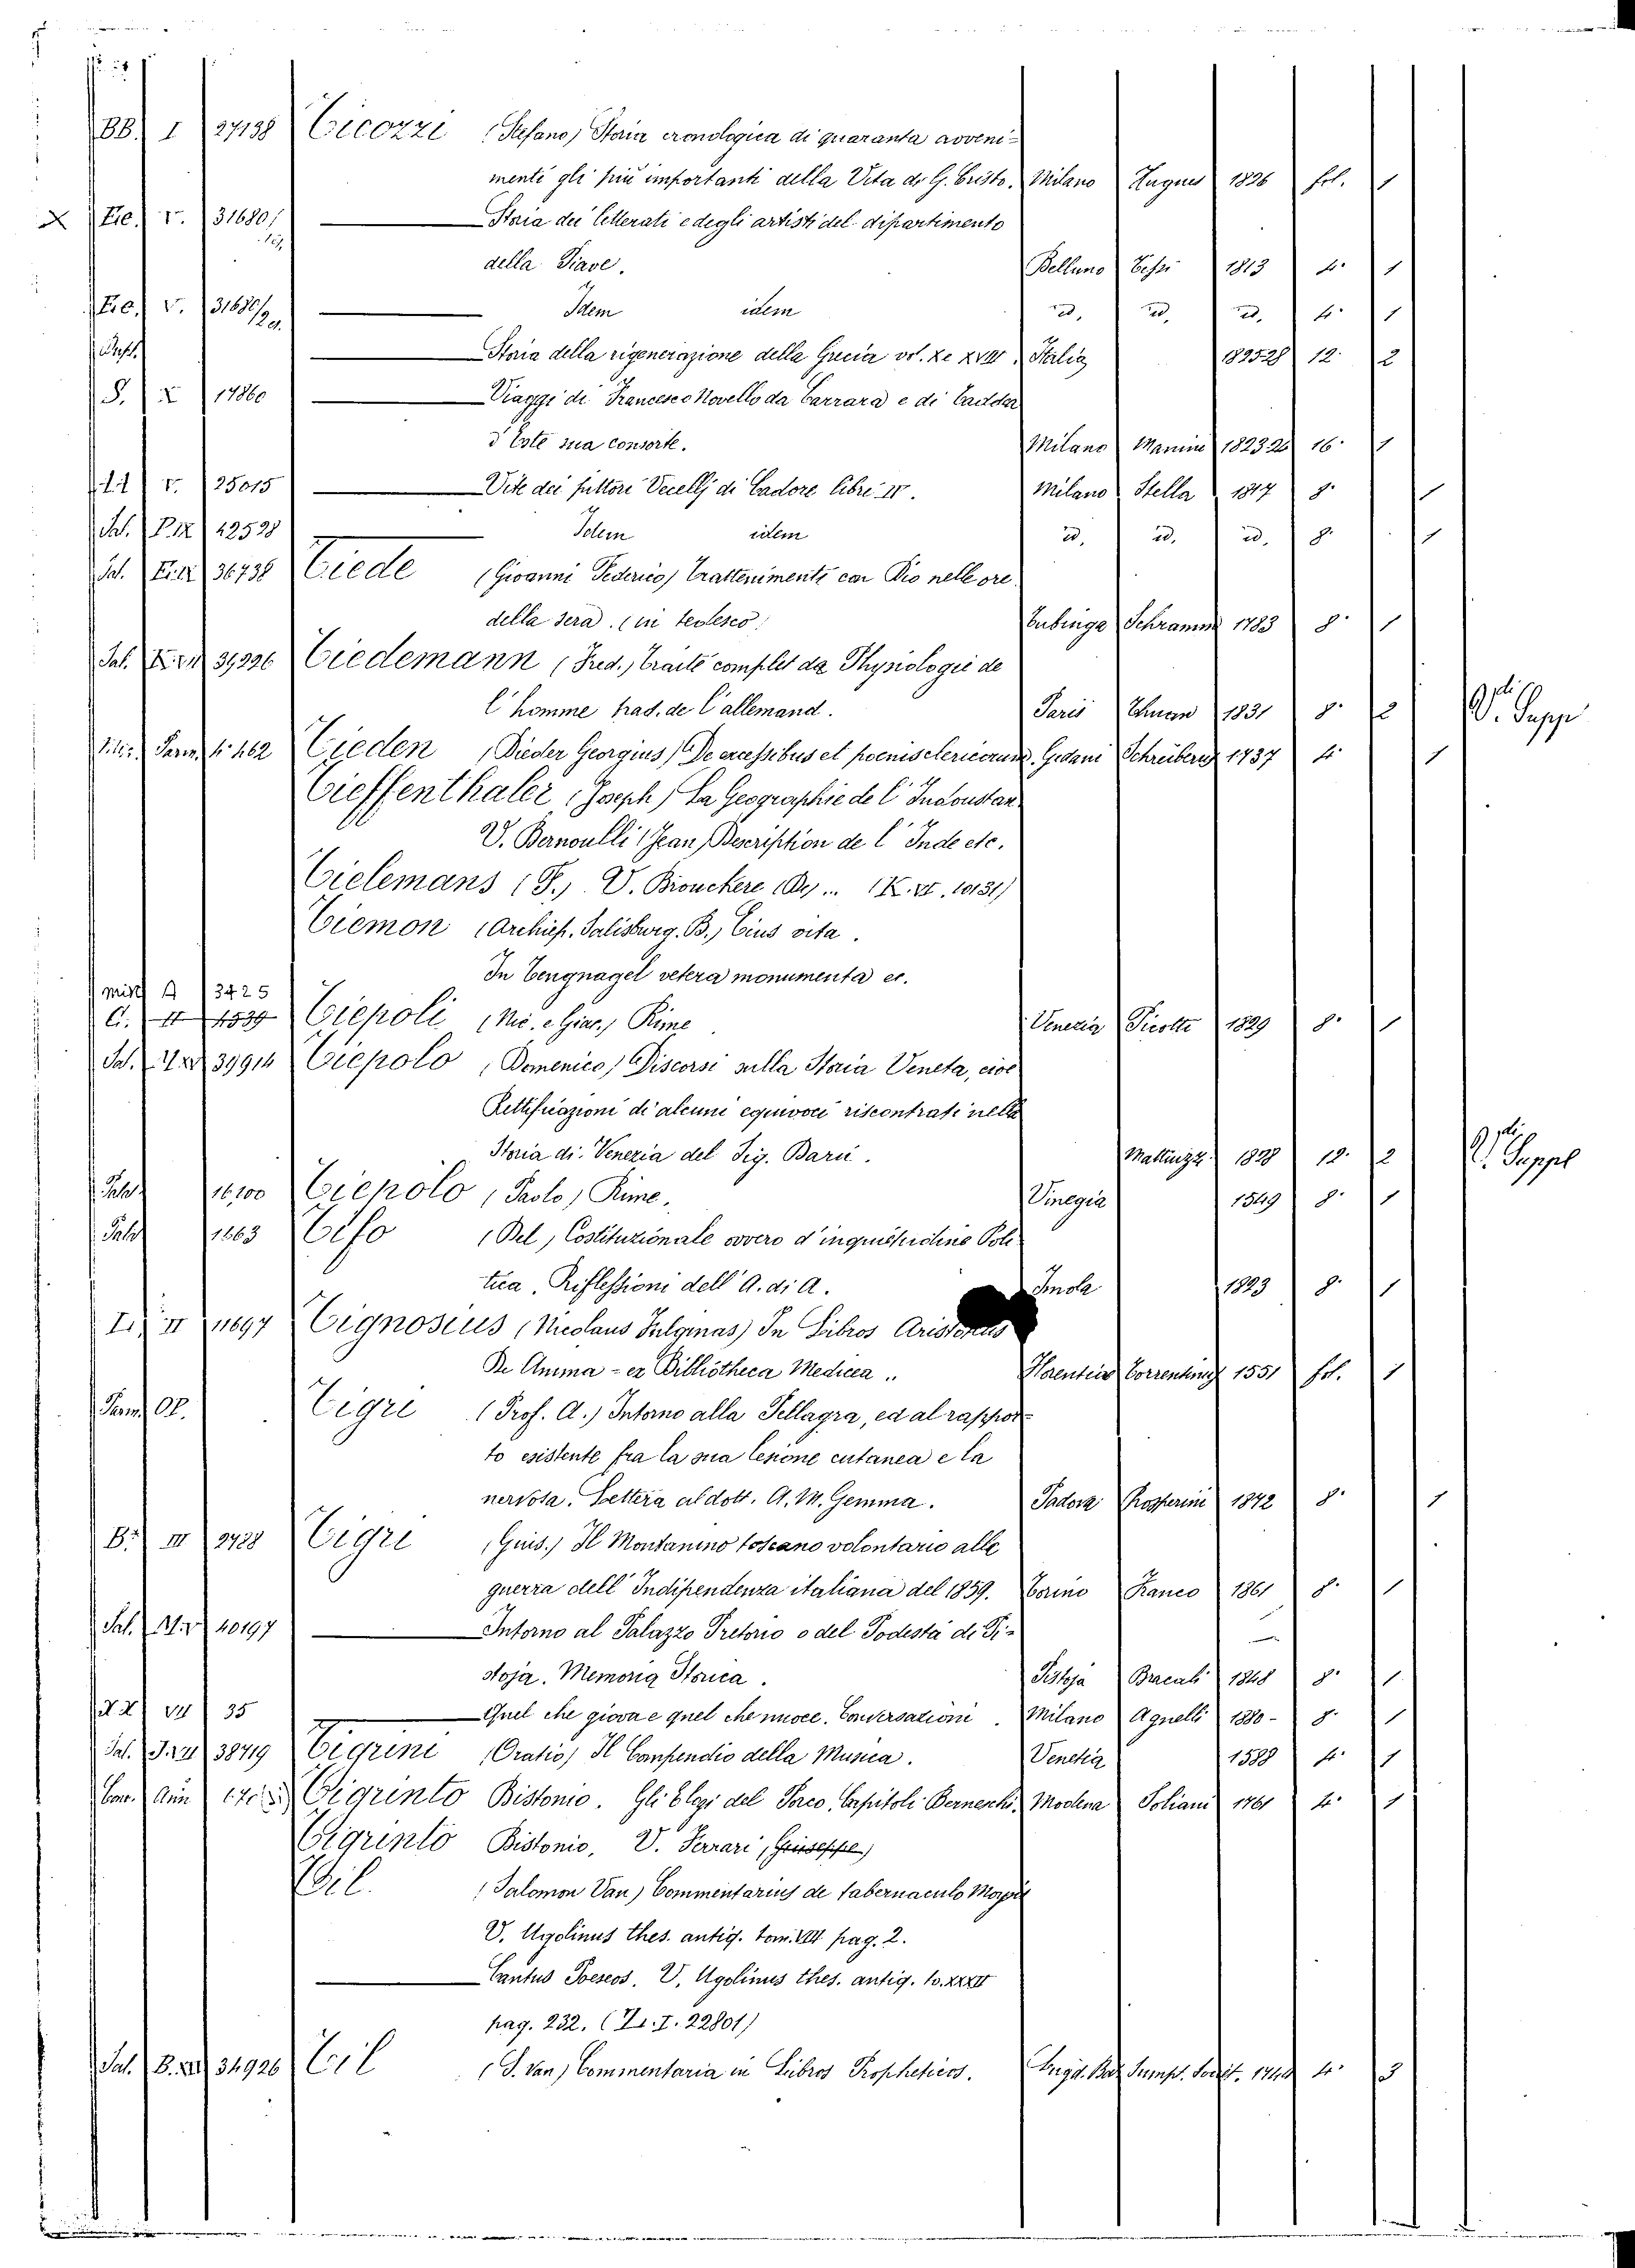 BB. I 27138 Ticozzi (Stefano) Storia cronologica di quaranta avveni-
menti gli più importanti della Vita di G. Cristo. Milano Hugues 1826 fol. 1
X Etc. V. 31680/ Storia dei letterati e degli artisti del dipartimento
della Piave. Belluno Tissi 1813 4° 1
Etc. V. 31680/ Idem idem id. id. id. 4° 1
Storia della rigenerazione della Grecia vol. X e XVIII. Italia 1825-28 12° 2
S. X 17860 Viaggi di Francesco Novello da Carrara e di Taddea
d'Este sua consorte. Milano Manini 1823 16° 1
V. 25015 Vite dei pittori Vecellj di Cadore libri IV. Milano Stella 1817 8° 1
Sal. 42528 Idem idem id. id. id. 8° 1
Sal. 36738 Tiede (Giovanni Federico) Trattenimenti con Dio nelle ore
della sera. (in tedesco) Tubinga Schramm 1783 8° 1
Sal. 39226 Tiedemann (Fred.) Traité complet de Physiologie de
l'homme trad. de l'allemand. Paris 1831 8° 2 V. Suppl
462 Tieden (Dieder Georgius) De excessibus et poenis clericorum. Gedani Schreiberus 1737 4° 1
Tieffenthaler (Joseph) La Geographie de l'Indoustan
V. Bernoulli (Jean) Description de l'Inde etc.
Tielemans (F.) V. Brouckere (De) ... (K. VI. 10131)
Tiemon (Archiep. Salisburg. B.) Eius vita.
In Tengnagel vetera monumenta ec.
Misc A 3425
C. II 4539 Tiepoli (Nic. e Giac.) Rime Venezia Picotti 1829 8° 1
Sal. 39914 Tiepolo (Domenico) Discorsi sulla Storia Veneta, cioè
Rettificazioni di alcuni equivoci riscontrati nella
Storia di Venezia del Sig. Daru. Mattiuzzi 1828 12° 2 V. Suppl
16,100 Tiepolo (Paolo) Rime. Vinegia 1549 8° 1
1663 Tifo (Del) Costituzionale ovvero d'inquietudine Poli-
tica. Riflessioni dell'A. di A. Imola 1823 8° 1
II 11697 Tignosius (Nicolaus Fulginas) In Libros Aristotelis
De Anima - ex Bibliotheca Medicea .. Florentiae Torrentinus 1551 fol. 1
OP. Tigri (Prof. A.) Intorno alla Pellagra, ed al rappor-
to esistente fra la sua lesione cutanea e la
nervosa. Lettera al dott. A. M. Gemma. Padova Prosperini 1872 8° 1
B. III 2728 Tigri (Guis.) Il Montanino toscano volontario alla
guerra dell'Indipendenza italiana del 1859. Torino Franco 1861 8° 1
Sal. 40197 Intorno al Palazzo Pretorio o del Podestà di Pi-
stoja. Memoria Storica. Pistoja Bracali 1848 8° 1
VII 35 Quel che giova e quel che nuoce. Conversazioni. Milano Agnelli 1880 - 8° 1
Sal. 38719 Tigrini (Oratio) Il Compendio della Musica. Venetia 1588 4° 1
Tigrinto Bistonio. Gli Elogi del Porco, Capitoli Berneschi. Modena Soliani 1761 4° 1
Tigrinto Bistonio, V. Ferrari (Giuseppe)
Til. (Salomon Van) Commentarius de tabernaculo Mosis
V. Ugolinus thes. antiq. tom. VIII pag. 2.
Cantus Poeseos. V. Ugolinus thes. antiq. to. XXXII
pag. 232. (Z. I. 22801)
Sal. 34926 Til (S. van) Commentaria in Libros Propheticos. Lugd. Bat. Sumpt. Societ. 1744 4° 3